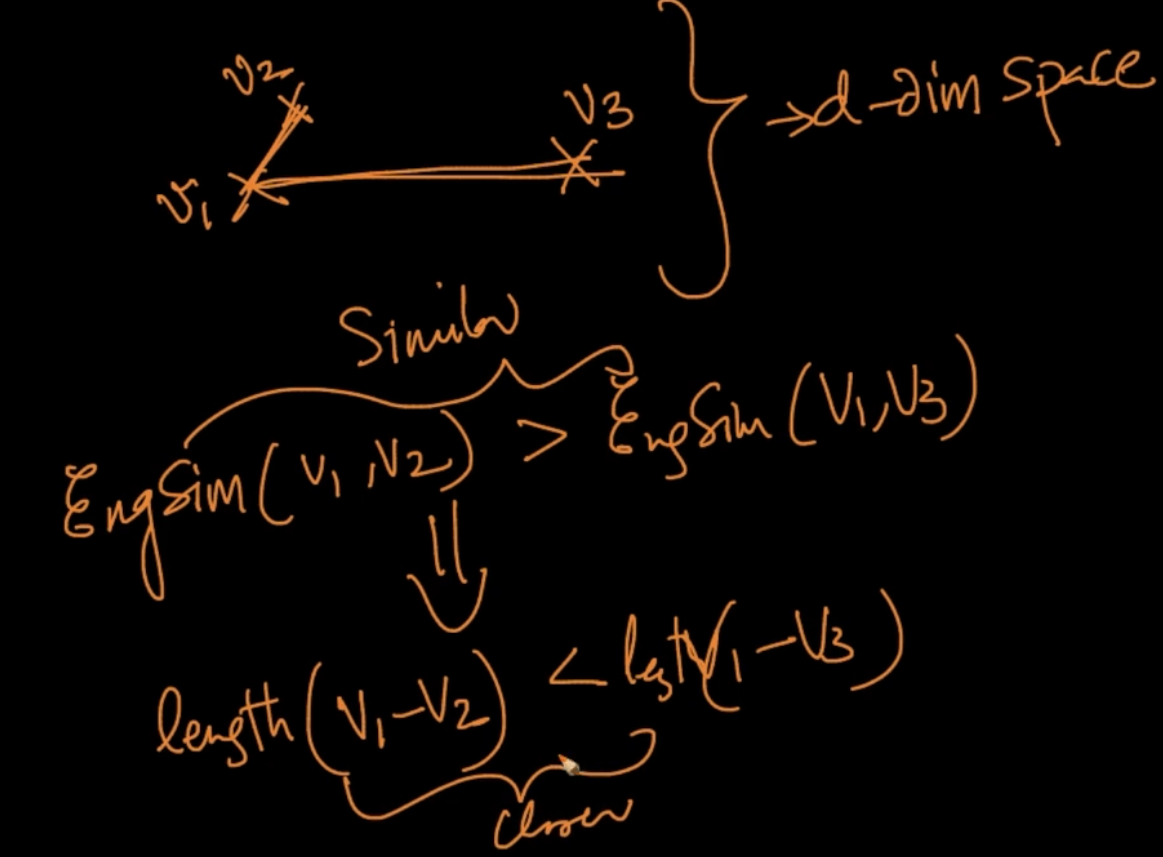 v2
v3
→d-dim space
v1
Similar
EngSim(v1,v2) > EngSim(v1,v3)
⇓
length(v1-v2) < legt(v1-v3)
closer